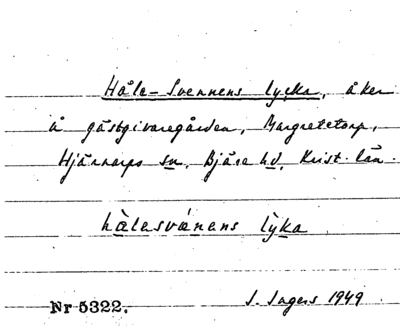 Håle-Svennens lycka, åker
å gästgivaregården, Margretetorp,
Hjärnarps sn, Bjäre hd, Krist. län.
hàlesvǽnens lỳka
Nr 5322.
I. Ingers 1949